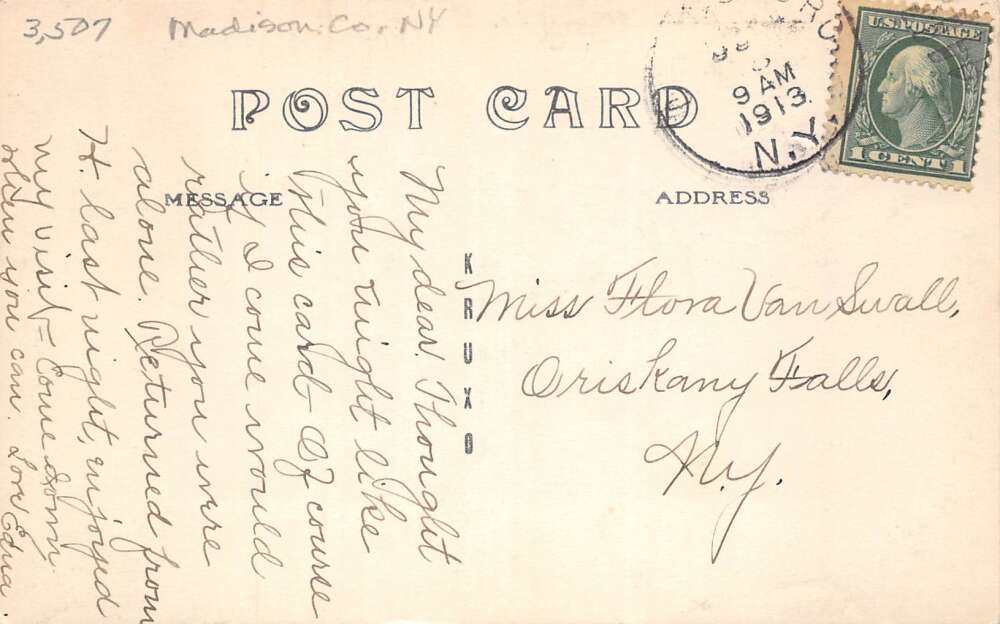 3,507 Madison Co. NY
9 AM
1913
N.Y.
U.S. POSTAGE
1 CENT 1
POST CARD
MESSAGE
ADDRESS
KRUXO
My dear. Thought
you might like
this card - Of course
if I come would
rather you were
alone. Returned from
H. last night, enjoyed
my visit - Come down
when you can. Love Edna.
Miss Flora Van Swall,
Oriskany Falls,
N.Y.